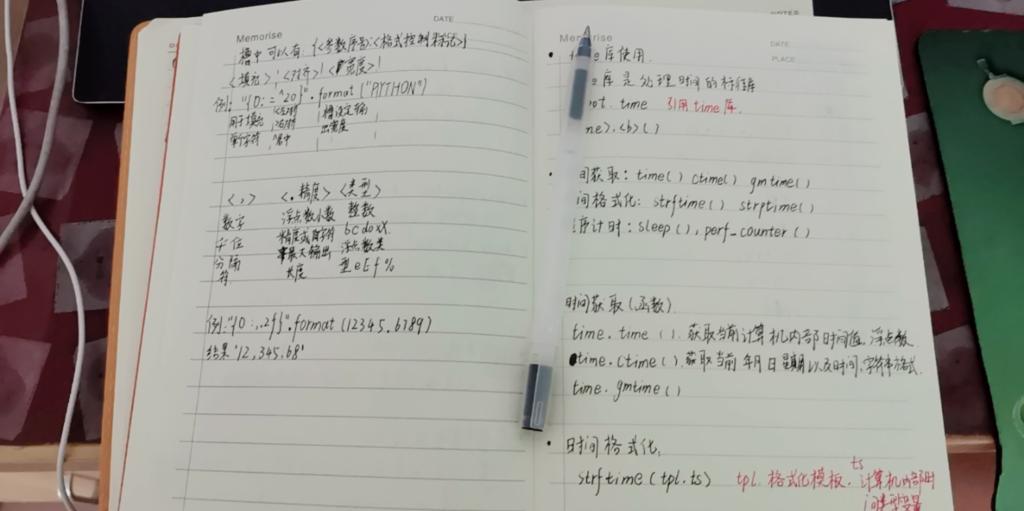 Memorise
DATE
槽中可以有:{<参数序号>:<格式控制标记>}
<填充>|<对齐>|<宽度>|
例: "{0:=^20}".format("PYTHON")
用于填充 <左对齐 槽设定输
单个字符 >右对齐 出宽度
^居中
<,> <.精度> <类型>
数字 浮点数小数 整数
千位 精度或字符 bcdoxX
分隔 串最大输出 浮点数类
符 长度 型eEf%
例:"{0:,.2f}".format(12345.6789)
结果'12,345.68'
Memorise
NOTES
DATE
PLACE
库使用
库是处理时间的标准库
time 引用time库
.<b>()
间获取: time() ctime() gmtime()
间格式化: strftime() strptime()
序计时: sleep(), perf_counter()
时间获取(函数)
time.time(). 获取当前计算机内部时间值, 浮点数
time.ctime(). 获取当前年月日星期以及时间,字符串格式.
time.gmtime()
时间格式化,
strftime(tpl.ts) tpl. 格式化模板. ts 计算机内部时
间类型变量